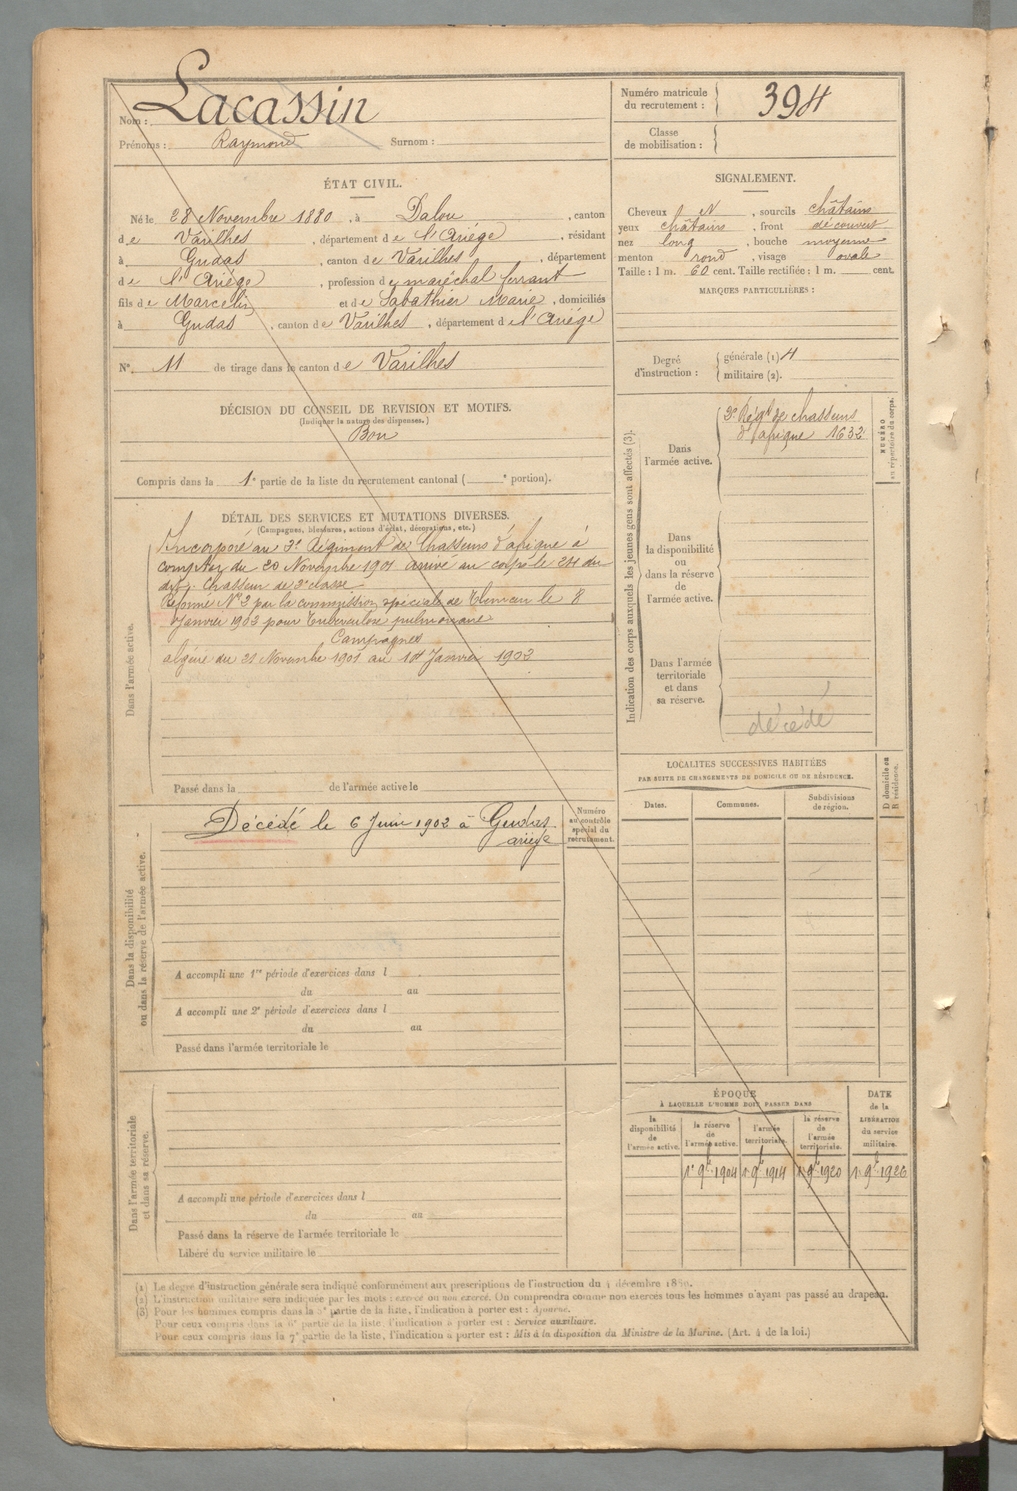 Nom : Lacassin
Prénoms : Raymond Surnom :
Numéro matricule du recrutement : 394
Classe de mobilisation :
ÉTAT CIVIL.
Né le 28 Novembre 1880, à Dalou, canton
de Varilhes, département de l'Ariège, résidant
à Gudas, canton de Varilhes, département
de l'Ariège, profession de maréchal ferrant
fils de Marcelin et de Sabathier Marie, domiciliés
à Gudas, canton de Varilhes, département de l'Ariège
N° 11 de tirage dans le canton de Varilhes
DÉCISION DU CONSEIL DE REVISION ET MOTIFS.
(Indiquer la nature des dispenses.)
Bon
Compris dans la 1e partie de la liste du recrutement cantonal ( e portion).
DÉTAIL DES SERVICES ET MUTATIONS DIVERSES.
(Campagnes, blessures, actions d'éclat, décorations, etc.)
Dans l'armée active.
Incorporé au 3e Régiment de Chasseurs d'afrique à
compter du 20 Novembre 1901 arrivé au corps le 24 du
dit. Chasseur de 2e classe
Réformé N° 2 par la commission spéciale de Tlemcen le 8
Janvier 1902 pour Tuberculose pulmonaire
Campagnes
algérie du 21 Novembre 1901 au 14 Janvier 1902
Passé dans la de l'armée active le
Dans la disponibilité ou dans la réserve de l'armée active.
Décédé le 6 Juin 1902 à Gudas
ariège
Numéro au contrôle spécial du recrutement.
A accompli une 1re période d'exercices dans l
du au
A accompli une 2e période d'exercices dans l
du au
Passé dans l'armée territoriale le
Dans l'armée territoriale et dans sa réserve.
A accompli une période d'exercices dans l
du au
Passé dans la réserve de l'armée territoriale le
Libéré du service militaire le
SIGNALEMENT.
Cheveux N, sourcils châtains
yeux châtains, front découvert
nez long, bouche moyenne
menton rond, visage ovale
Taille : 1 m. 60 cent. Taille rectifiée : 1 m. cent.
MARQUES PARTICULIÈRES :
Degré d'instruction :
générale (1) 4
militaire (2).
Indication des corps auxquels les jeunes gens sont affectés (3).
NUMÉRO au répertoire du corps.
Dans l'armée active.
3e Régt de chasseurs
d'afrique 1632
Dans la disponibilité ou dans la réserve de l'armée active.
Dans l'armée territoriale et dans sa réserve.
décédé
LOCALITES SUCCESSIVES HABITÉES
PAR SUITE DE CHANGEMENTS DE DOMICILE OU DE RÉSIDENCE.
D domicile ou R résidence.
Dates. Communes. Subdivisions de région.
ÉPOQUE
À LAQUELLE L'HOMME DOIT PASSER DANS
DATE de la LIBÉRATION du service militaire.
la disponibilité de l'armée active. la réserve de l'armée active. l'armée territoriale. la réserve de l'armée territoriale.
1er 9bre 1904 1er 9bre 1914 1er 9bre 1920 1er 9bre 1926
(1) Le degré d'instruction générale sera indiqué conformément aux prescriptions de l'instruction du 4 décembre 1889.
(2) L'instruction militaire sera indiquée par les mots : exercé ou non exercé. On comprendra comme non exercés tous les hommes n'ayant pas passé au drapeau.
(3) Pour les hommes compris dans la 5e partie de la liste, l'indication à porter est : Ajourné.
Pour ceux compris dans la 6e partie de la liste, l'indication à porter est : Service auxiliaire.
Pour ceux compris dans la 7e partie de la liste, l'indication à porter est : Mis à la disposition du Ministre de la Marine. (Art. 4 de la loi.)